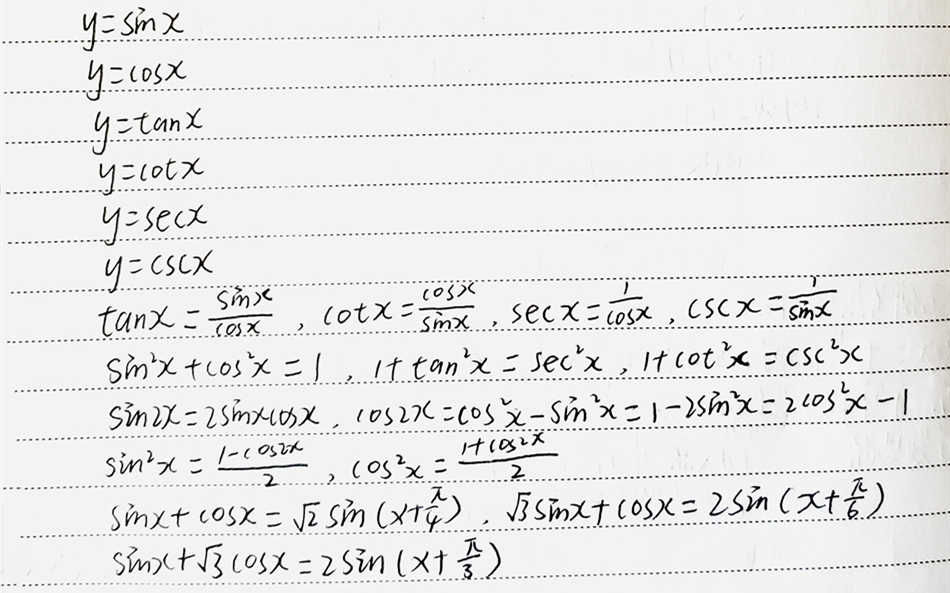 y=sinx
y=cosx
y=tanx
y=cotx
y=secx
y=cscx
tanx = sinx/cosx , cotx = cosx/sinx , secx = 1/cosx , cscx = 1/sinx
sin²x + cos²x = 1 , 1+tan²x = sec²x , 1+cot²x = csc²x
sin2x = 2sinxcosx , cos2x = cos²x - sin²x = 1-2sin²x = 2cos²x - 1
sin²x = (1-cos2x)/2 , cos²x = (1+cos2x)/2
sinx + cosx = √2 sin(x+π/4) , √3sinx + cosx = 2sin(x+π/6)
sinx + √3cosx = 2sin(x+π/3)